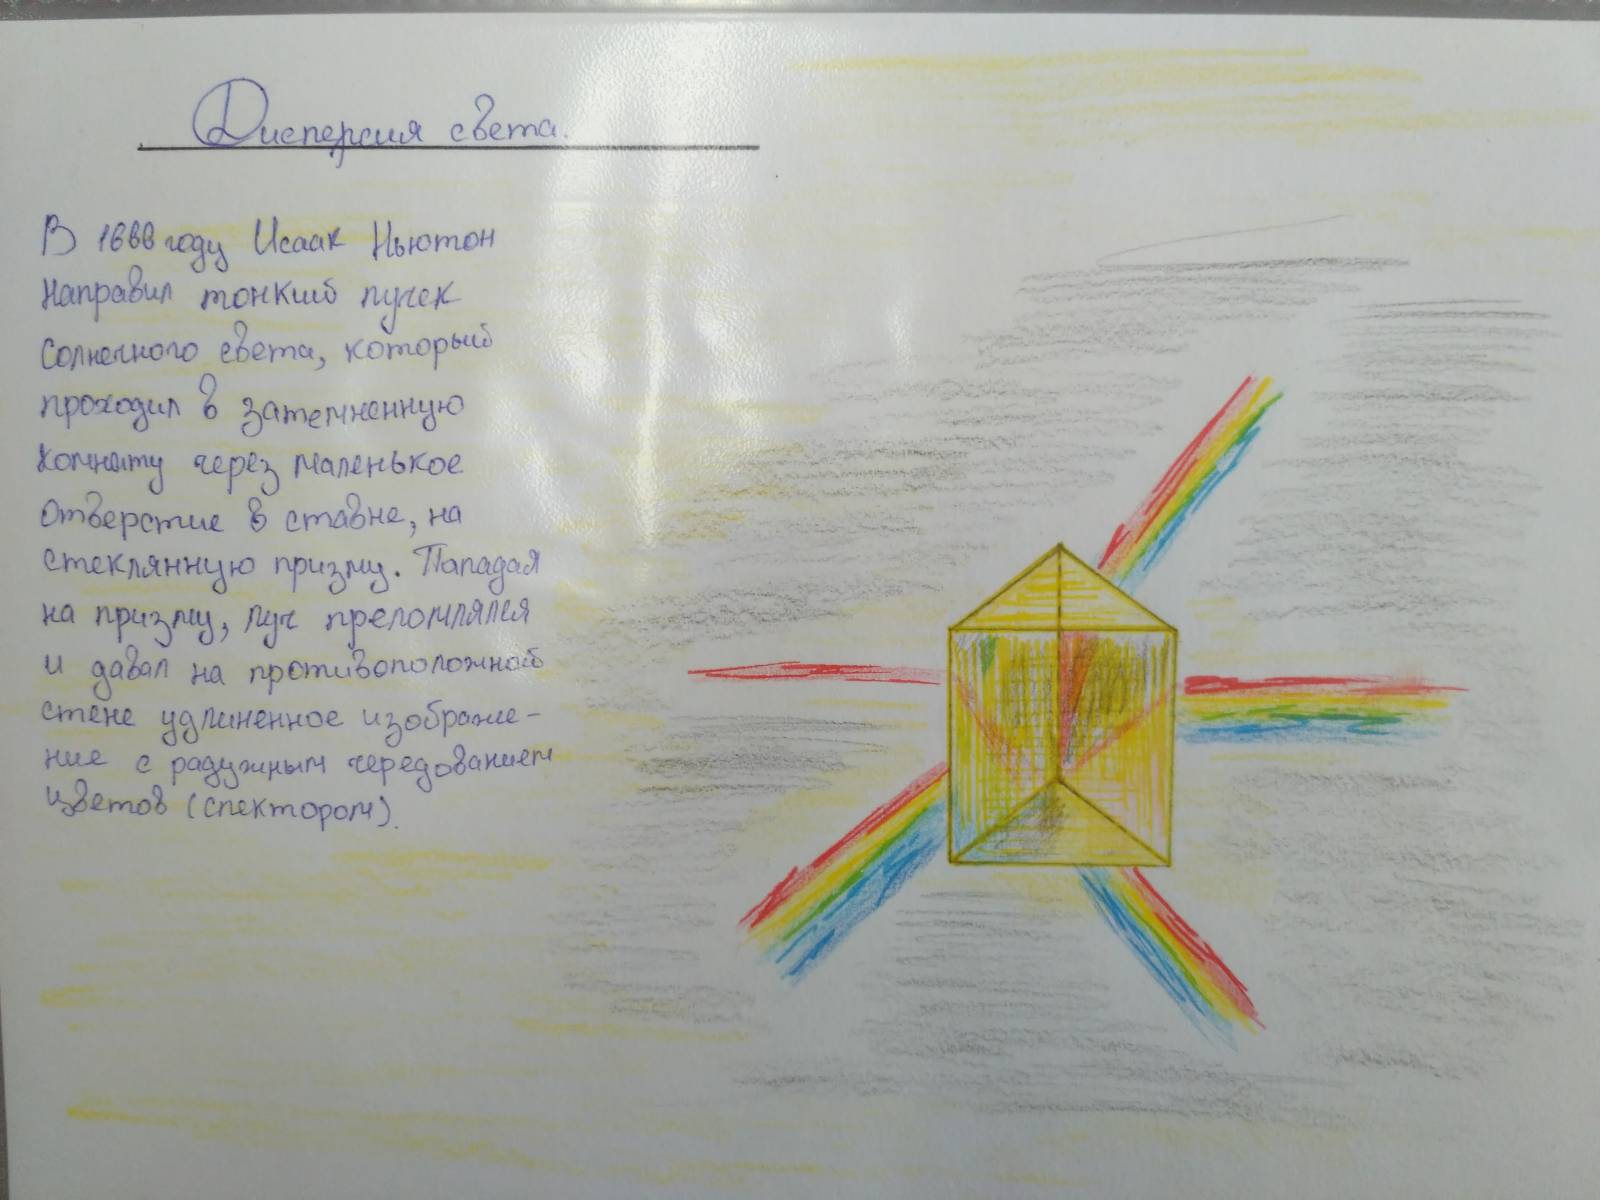 Дисперсия света.
В 1666 году Исаак Ньютон
направил тонкий пучек
солнечного света, который
проходил в затемненную
комнату через маленькое
отверстие в ставне, на
стеклянную призму. Пападая
на призму, луч преломлялся
и давал на противоположной
стене удлиненное изображе-
ние с радужным чередованием
цветов (спектором).